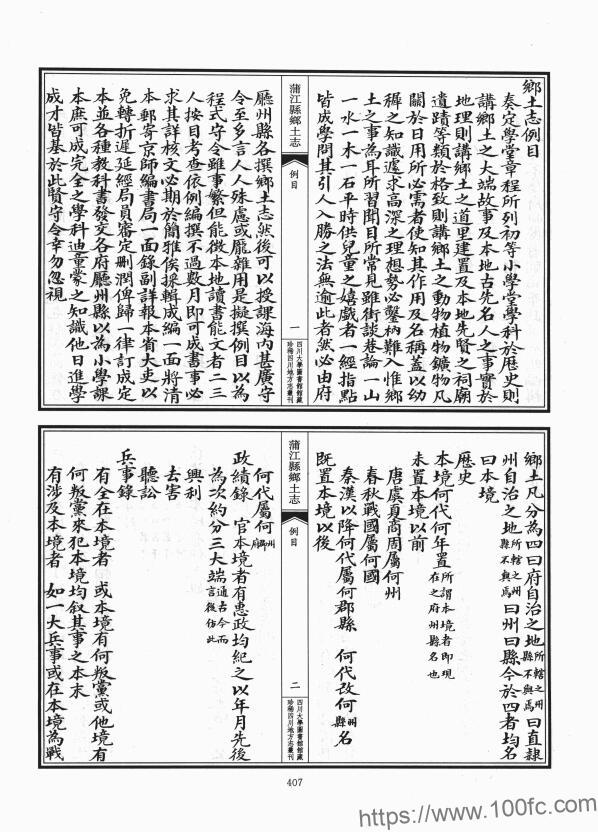 鄉土志例目
奏定學堂章程所列初等小學堂學科於歷史則
講鄉土之大端故事及本地古先名人之事實於
地理則講鄉土之道里建置及本地先賢之祠廟
遺蹟等類於格致則講鄉土之動物植物鑛物凡
關於日用所必需者使知其作用及名稱蓋以幼
穉之知識遽求高深之理想勢必鑿枘難入惟鄉
土之事為耳所習聞目所常見雖街談巷論一山
一水一木一石平時供兒童之嬉戲者一經指點
皆成學問其引人入勝之法無逾此者然必由府
蒲江縣鄉土志
例目
一
四川大學圖書館館藏
珍稀四川地方志叢刊
廳州縣各撰鄉土志然後可以授課海內甚廣守
令至多言人人殊慮或龐雜用是擬撰例目以為
程式守令雖事繁但能徵本地讀書能文者二三
人按目考查依例編撰不過數月即可成書事必
求其詳核文必期於簡雅俟採輯成編一面將清
本郵寄京師編書局一面錄副詳報本省大吏以
免轉折遲延經局員審定刪潤俾歸一律訂成定
本並各種教科書發交各府廳州縣以為小學課
本庶可成完全之學科迪童蒙之知識他日進學
成才皆基於此賢守令幸勿忽視
鄉土凡分為四曰府自治之地所轄之州縣不與焉曰直隸
州自治之地所轄之縣不與焉曰州曰縣今於四者均名
曰本境
歷史
本境何代何年置所謂本境者即現在之府州縣名也
未置本境以前
唐虞夏商周屬何州
春秋戰國屬何國
秦漢以降何代屬何郡縣 何代改何州縣名
既置本境以後
蒲江縣鄉土志
例目
二
四川大學圖書館館藏
珍稀四川地方志叢刊
何代屬何州郡府
政績錄 官本境者有惠政均紀之以年月先後
為次約分三大端通古今而言後仿此
興利
去害
聽訟
兵事錄
有全在本境者 或本境有何叛黨或他境有
何叛黨來犯本境均叙其事之本末
有涉及本境者 如一大兵事或在本境為戰
407
https://www.100fc.com